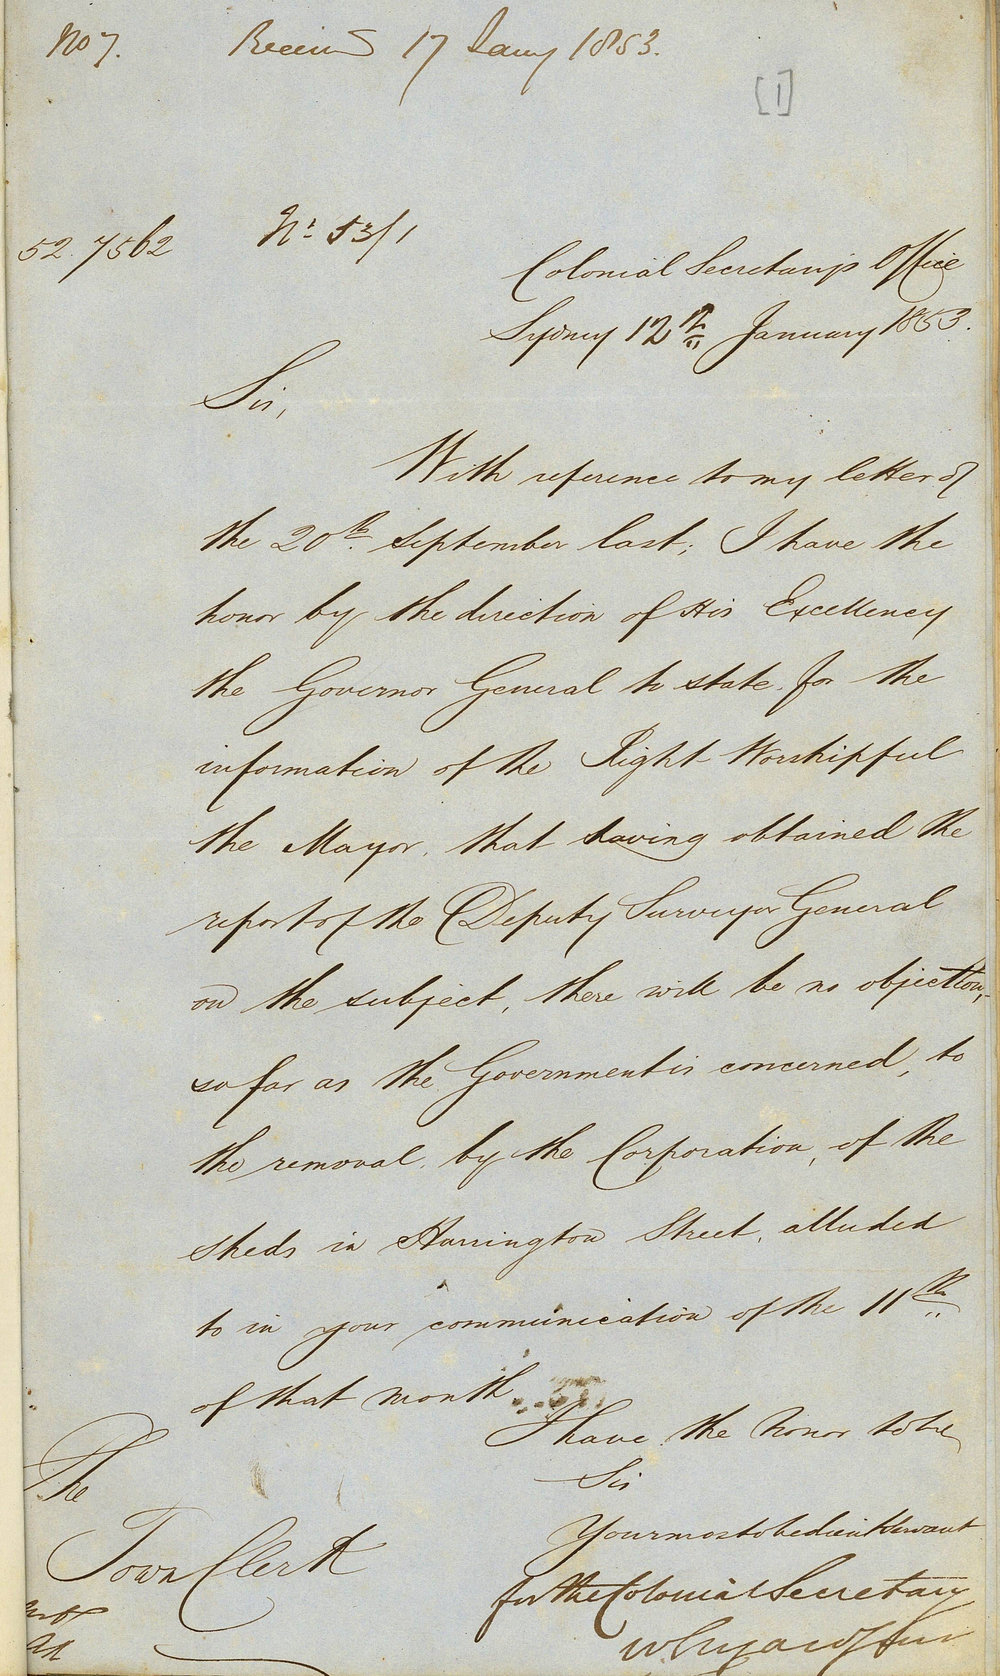 No 7. Received 17 Jany 1853.
[1]
52.7562 No 53/1
Colonial Secretary's Office
Sydney 12th January 1853.
Sir,
With reference to my letter of
the 20th. September last; I have the
honor by the direction of His Excellency
the Governor General to state for the
information of the Right Worshipful
the Mayor, that having obtained the
report of the Deputy Surveyor General
on the subject, there will be no objection,
so far as the Government is concerned, to
the removal, by the Corporation, of the
sheds in Harrington Street, alluded
to in your communication of the 11th
of that month.
I have the honor to be
Sir
Your most obedient Servant
for the Colonial Secretary
The
Town Clerk